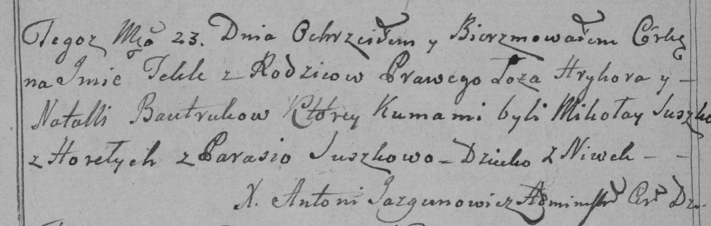 Tegoż Mca 23. Dnia Ochrzciłem y Bierzmowałem Córkę
na Imie Teklę z Rodzicow Prawego Łoża Hryhora y –
Natalli Bautrukow Ktorey Kumami byli Mikołay Suszko
z Horełych z Parasią Suszkowo – Dziecko z Niwek – –
X. Antoni Jazgunowicz Administr Cer Dz